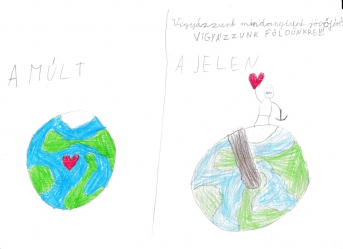 Vigyázzunk mindannyiunk jövőjére
VIGYÁZZUNK FÖLDÜNKRE!!!
A MÚLT
A JELEN